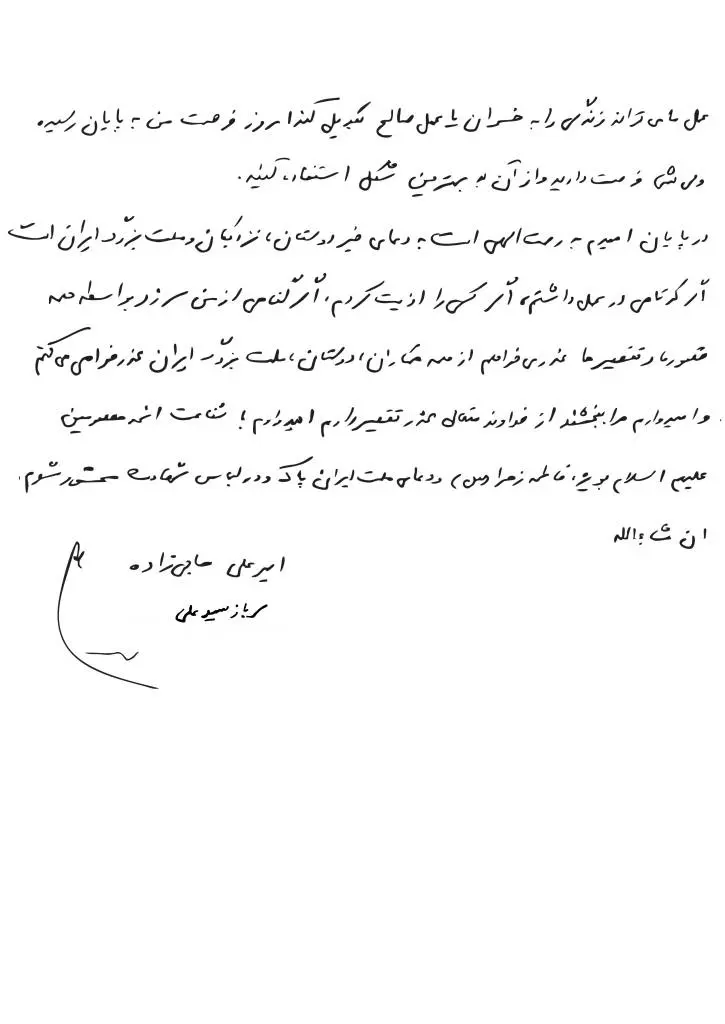 عمل ما می تواند زندگی را به خسران یا عمل صالح تبدیل کند امروز فرصت من به پایان رسیده
ولی شما فرصت دارید و از آن به بهترین شکل استفاده کنید.
در پایان امیدم به رحمت الهی است به دعای خیر دوستان، نزدیکان و ملت بزرگ ایران است
اگر کوتاهی در عمل داشتم، اگر کسی را اذیت کردم، اگر گناهی از من سر زد بواسطه همه
قصورها و تقصیرها عذر می خواهم از همه همکاران، دوستان، ملت بزرگ ایران عذرخواهی می کنم
و امیدوارم مرا ببخشند از خداوند متعال عذر تقصیر دارم امید دارم با شفاعت ائمه معصومین
علیهم السلام بویژه فاطمه زهرا (س) و دعای ملت ایران پاک و در لباس شهادت محشور شوم.
ان شاءالله
امیرعلی حاجی زاده
سرباز سید علی